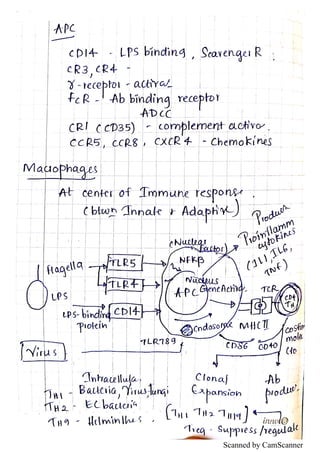 APC
CD14 - LPS binding, Scavenger R.
CR3, CR4 -
γ-receptor - activat
FcR - Ab binding receptor
ADCC
CR1 (CD35) - complement activa.
CCR5, CCR8, CXCR4 - Chemokines
Macrophages
At center of Immune response
(btwn Innate & Adaptive)
Produce
Proinflamm
cytokines
(IL1, IL6,
TNF)
(Nuclear
factor)
NFKβ
Flagella
TLR5
TLR4
Nucleus
Gene Activa.
APC
TCR
CD4
TH
LPS
LPS-binding
protein
CD14
Endosome
MHC II
TLR789
CD86
CD40
costim
mole
Virus
Intracellula.
Clonal
Ab
TH1 - Bacteria, Virus, fungi
Expansion
produc.
TH2 - EC bacteria
[TH1 TH2 TH17]
TH9 - Helminthes.
Treg - Suppress/regulate
Scanned by CamScanner